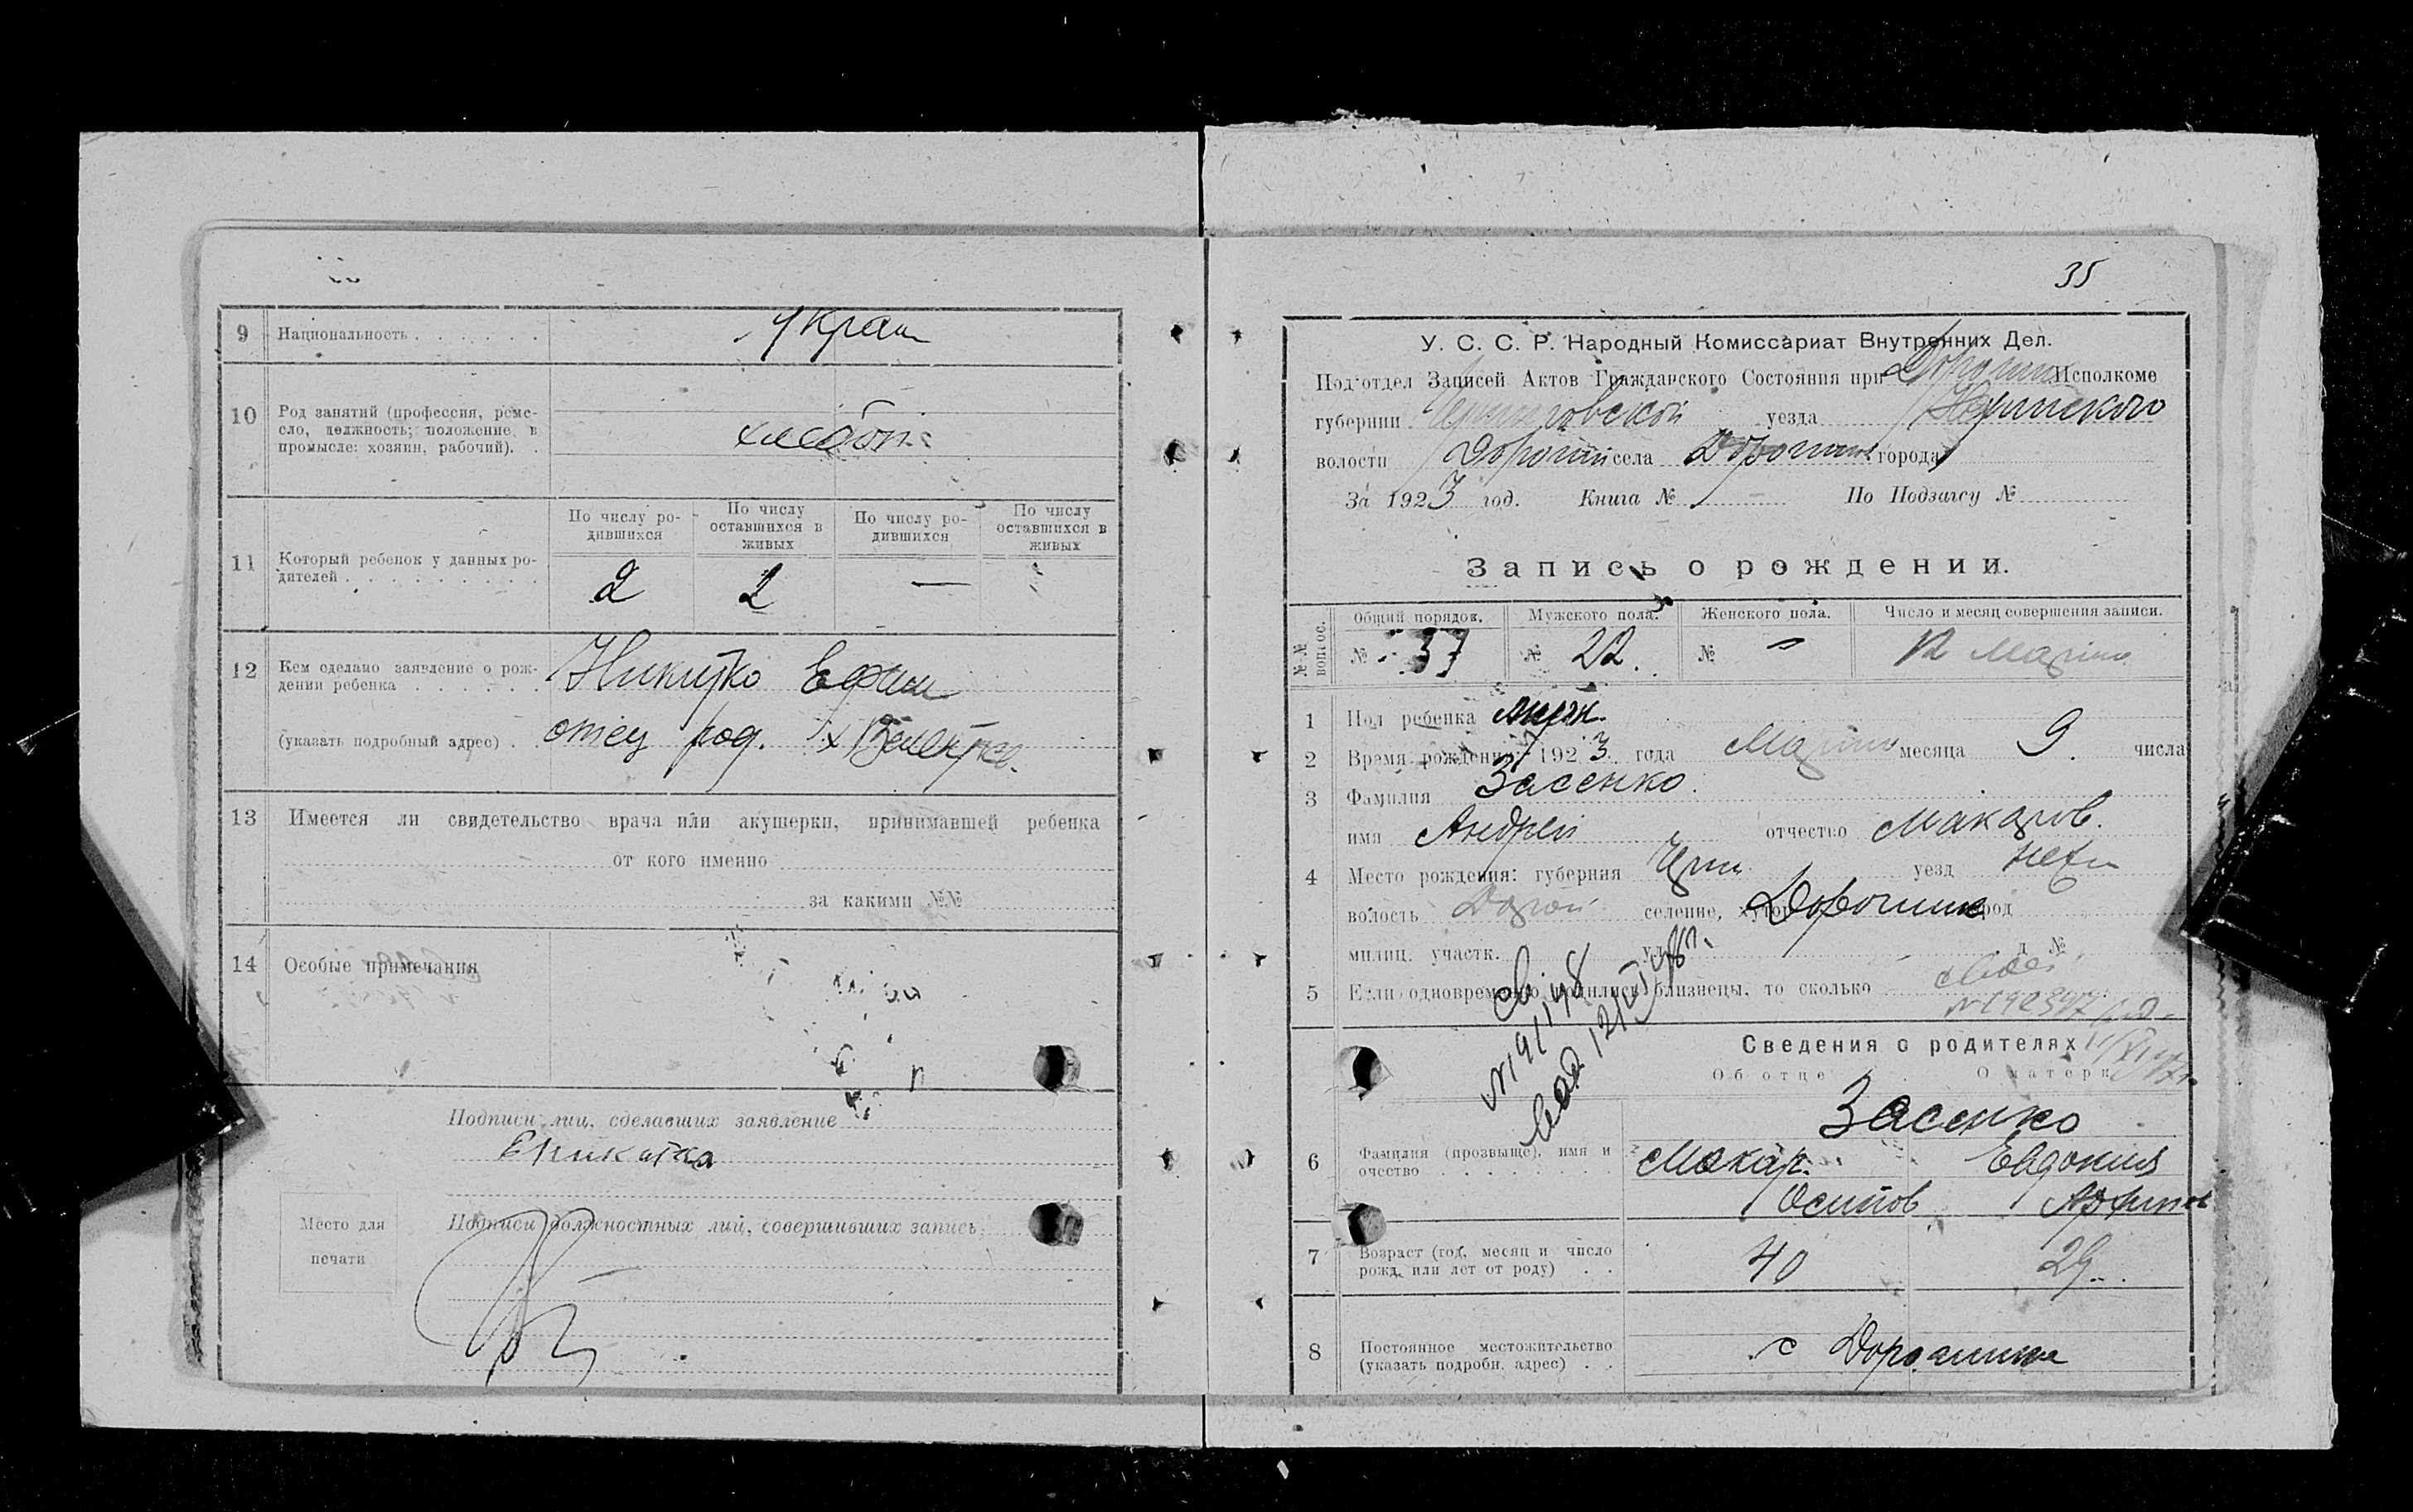 9 Национальность Украин
10 Род занятий (профессия, ремесло, должность; положение в
промысле: хозяин, рабочий). хлебоп
По числу родившихся По числу оставшихся в живых По числу родившихся По числу оставшихся в живых
11 Который ребенок у данных родителей
2 2 —
12 Кем сделано заявление о рождении ребенка Никитко Ефим
(указать подробный адрес) отец род. х
13 Имеется ли свидетельство врача или акушерки, принимавшей ребенка
от кого именно
за какими №№
14 Особые примечания
Подписи лиц, сделавших заявление
Е Никитка
Место для печати
Подписи должностных лиц, совершивших запись,
35
У. С. С. Р. Народный Комиссариат Внутренних Дел.
Подотдел Записей Актов Гражданского Состояния при Исполкоме
губернии Черниговской уезда Нежинского
волости Дорогин села Дорогинка города
За 1923 год. Книга № По Подзагсу №
Запись о рождении.
№№ вопрос. Общий порядок. Мужского пола. Женского пола. Число и месяц совершения записи.
№ 37 № 22. № — 12 Марта
1 Пол ребенка мужск.
2 Время рождения 1923 года Марта месяца 9. числа
3 Фамилия Засенко.
имя Андрей отчество Макаров.
4 Место рождения: губерния Черн уезд Неж
волость Дорог селение, хутор Дорогинка город
милиц. участк. ул. д №
5 Если одновременно родились близнецы, то сколько
Сведения о родителях
Об отце О матери
Засенко
6 Фамилия (прозвыще), имя и очество Макар. Евдокия
Осипов
7 Возраст (год, месяц и число рожд. или лет от роду) 40 29.
8 Постоянное местожительство (указать подробн. адрес) с Дорогинка